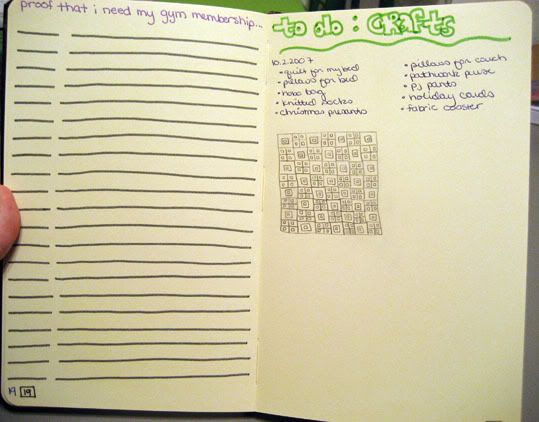 proof that i need my gym membership...
19 19
to do : CRafts
10.2.2007
• quilt for my bed
• pillows for bed
• hobo bag
• knitted socks
• christmas presents
• pillows for couch
• patchwork purse
• PJ pants
• holiday cards
• fabric coaster